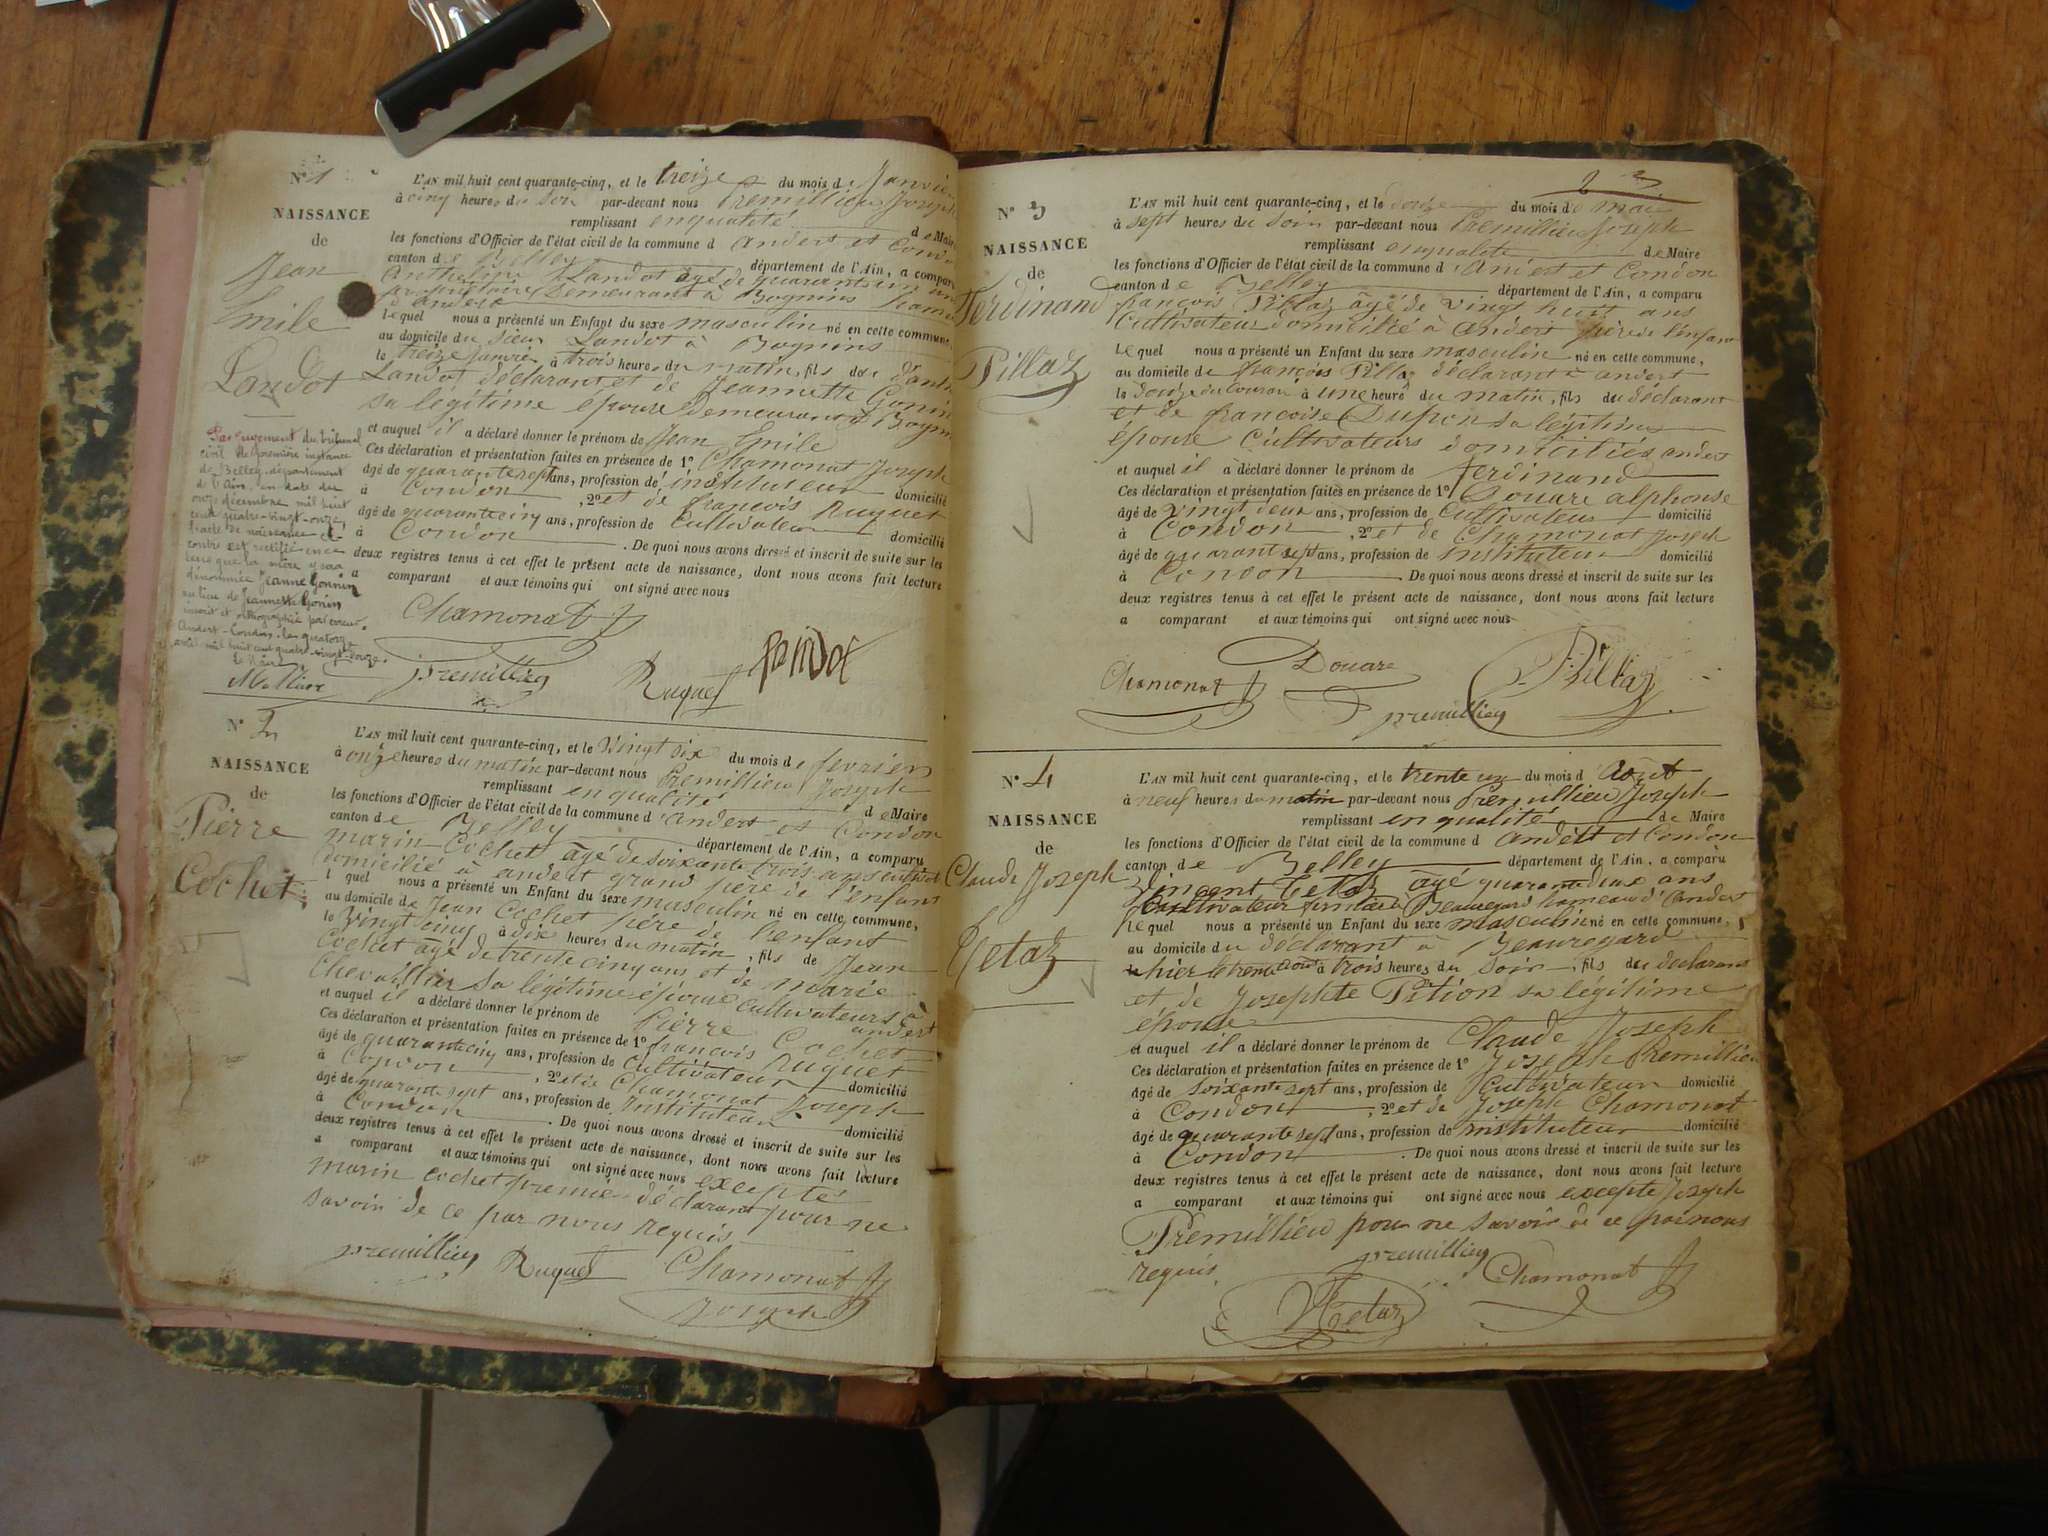 N° 1
NAISSANCE
de
Jean
Emile
Landot
L'AN mil huit cent quarante-cinq, et le treize du mois de Janvier
à cinq heures du soir par-devant nous Premillieu Joseph
remplissant en qualité de Maire
les fonctions d'Officier de l'état civil de la commune d'andert et Condon
canton de Belley département de l'Ain, a comparu
Anthelme Landot âgé de quarante un ans
propriétaire Demeurant à Bognins hameau
d'andert
Lequel nous a présenté un Enfant du sexe masculin né en cette commune
au domicile du sieur Landot à Bognins
le treize Janvier à trois heures du matin, fils de
Landot déclarant et de Jeannette Gonin
sa légitime épouse Demeurant à Bognins
et auquel il a déclaré donner le prénom de Jean Emile
Ces déclaration et présentation faites en présence de 1° Chamonat Joseph
âgé de quarante sept ans, profession de instituteur domicilié
à Condon, 2° et de francois Ruguet
âgé de quarante cinq ans, profession de Cultivateur domicilié
à Condon. De quoi nous avons dressé et inscrit de suite sur les
deux registres tenus à cet effet le présent acte de naissance, dont nous avons fait lecture
a comparant et aux témoins qui ont signé avec nous
Chamonat J
premillieu Ruguet Landot
Par jugement du tribunal
civil de première instance
de Belley, département
de l'Ain, en date du
onze décembre mil huit
cent quatre-vingt-onze,
l'acte de naissance ci-
contre est rectifié en ce
sens que la mère y sera
dénommée Jeanne Gonnin
au lieu de Jeannette Gonin
inscrit et orthographié par erreur.
Andert-Condon, le quatorze
avril mil huit cent quatre-vingt-douze.
Le Maire
N° 2
NAISSANCE
de
Pierre
Cochet
L'AN mil huit cent quarante-cinq, et le vingt six du mois de fevrier
à onze heures du matin par-devant nous Premillieu Joseph
remplissant en qualité de Maire
les fonctions d'Officier de l'état civil de la commune d'andert et Condon
canton de Belley département de l'Ain, a comparu
marin Cochet âgé de soixante trois ans
domicilié à andert grand père de l'enfant
l quel nous a présenté un Enfant du sexe masculin né en cette commune,
au domicile de Jean Cochet père de l'enfant
le vingt cinq à dix heures du matin, fils de Jean
Cochet âgé de trente cinq ans et de marie
Chevallier sa légitime épouse cultivateurs à
andert
et auquel il a déclaré donner le prénom de Pierre
Ces déclaration et présentation faites en présence de 1° francois Cochet
Ruguet
âgé de quarante cinq ans, profession de Cultivateur domicilié
à Condon, 2° et de Chamonat Joseph
âgé de quarante sept ans, profession de Instituteur domicilié
à Condon. De quoi nous avons dressé et inscrit de suite sur les
deux registres tenus à cet effet le présent acte de naissance, dont nous avons fait lecture
a comparant et aux témoins qui ont signé avec nous excepté
marin cochet premier déclarant pour ne
savoir de ce par nous requis
premillieu Ruguet Chamonat J
Joseph
N° 3
NAISSANCE
de
Ferdinand
Pillaz
L'AN mil huit cent quarante-cinq, et le douze du mois de mai
à sept heures du soir par-devant nous Premillieu Joseph
remplissant en qualité de Maire
les fonctions d'Officier de l'état civil de la commune d'andert et Condon
canton de Belley département de l'Ain, a comparu
françois Pillaz âgé de vingt huit ans
Cultivateur domicilié à andert père de l'enfant
Lequel nous a présenté un Enfant du sexe masculin né en cette commune,
au domicile de françois Pillaz déclarant à andert
le douze du courant à une heure du matin, fils du déclarant
et de francoise Dupon sa légitime
épouse Cultivateurs domiciliés andert
et auquel il a déclaré donner le prénom de ferdinand
Ces déclaration et présentation faites en présence de 1° Douare alphonse
âgé de vingt deux ans, profession de Cultivateur domicilié
à Condon, 2° et de Chamonat Joseph
âgé de quarant sept ans, profession de instituteur domicilié
à Condon. De quoi nous avons dressé et inscrit de suite sur les
deux registres tenus à cet effet le présent acte de naissance, dont nous avons fait lecture
a comparant et aux témoins qui ont signé avec nous
Chamonat J Douare Pillaz
premillieu
N° 4
NAISSANCE
de
Claude Joseph
Tetaz
L'AN mil huit cent quarante-cinq, et le trente un du mois d'Août
à neuf heures du matin par-devant nous Premillieu Joseph
remplissant en qualité de Maire
les fonctions d'Officier de l'état civil de la commune d andert et Condon
canton de Belley département de l'Ain, a comparu
Vincent Tetaz âgé quarante deux ans
Cultivateur fermier à Beauregard hameau d'andert
lequel nous a présenté un Enfant du sexe masculin né en cette commune,
au domicile du déclarant à Beauregard
le hier le trente août à trois heures du soir, fils du déclarant
et de Josephte Pition sa légitime
épouse
et auquel il a déclaré donner le prénom de Claude Joseph
Ces déclaration et présentation faites en présence de 1° Joseph Premillieu
âgé de soixante sept ans, profession de Cultivateur domicilié
à Condon, 2° et de Joseph Chamonat
âgé de quarante sept ans, profession de instituteur domicilié
à Condon. De quoi nous avons dressé et inscrit de suite sur les
deux registres tenus à cet effet le présent acte de naissance, dont nous avons fait lecture
a comparant et aux témoins qui ont signé avec nous excepté Joseph
Premillieu pour ne savoir de ce par nous
requis.
premillieu Chamonat J
V Tetaz